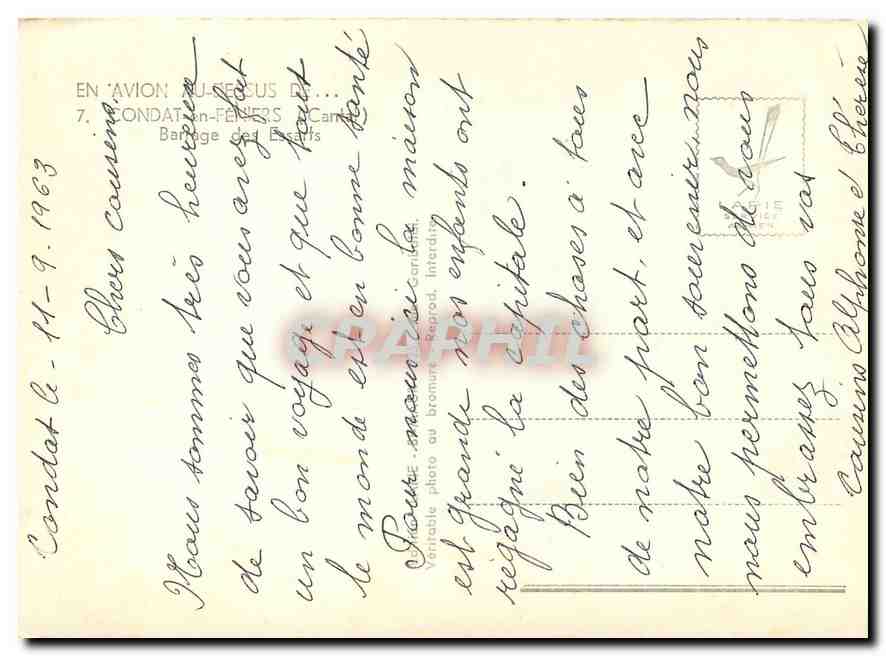 EN AVION AU-DESSUS DE...
7. CONDAT-en-FENIERS (Cantal)
Barrage des Essarts
Condat le - 11-9-1963
Chers cousins,
Nous sommes très heureux
de savoir que vous avez fait
un bon voyage et que tout
le monde est en bonne santé
Pour nous ici la maison
est grande nos enfants ont
régagné la capitale.
Bien des choses à tous
de notre part, et avec
notre bon souvenir nous
nous permettons de vous
embrassez tous vos
cousins Alphonse et Thérèse
Véritable photo au bromure Reprod. Interdite
LAPIE
SERVICE
AERIEN
CPAPHIL